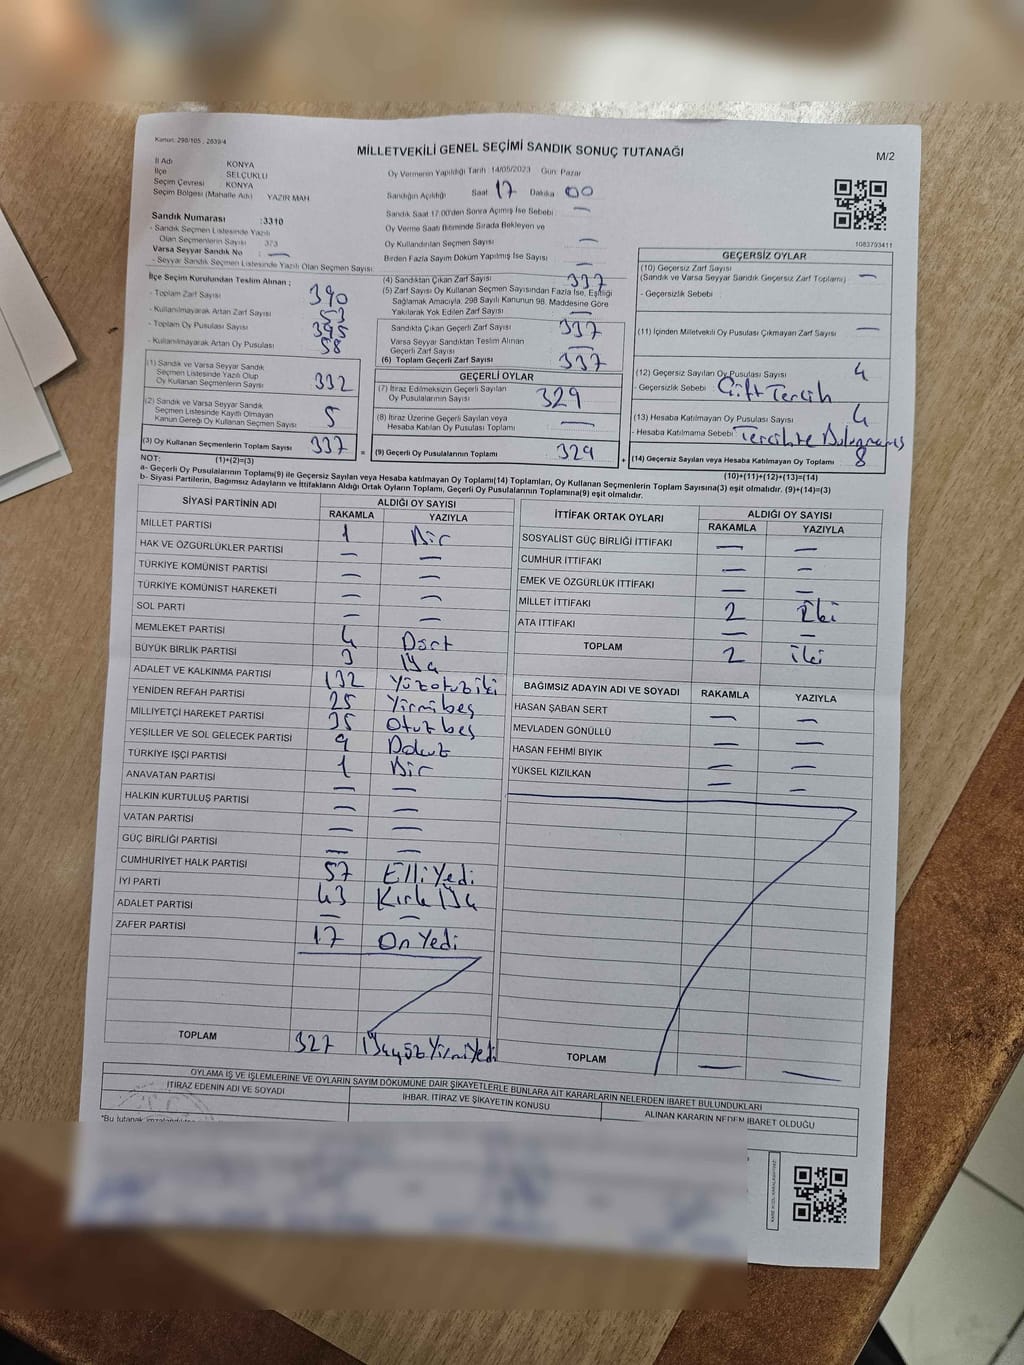 Kanun: 298/105 , 2839/4
MİLLETVEKİLİ GENEL SEÇİMİ SANDIK SONUÇ TUTANAĞI
M/2
İl Adı KONYA
İlçe SELÇUKLU
Seçim Çevresi KONYA
Seçim Bölgesi (Mahalle Adı) YAZIR MAH
Oy Vermenin Yapıldığı Tarih 14/05/2023 Gün: Pazar
Sandığın Açıldığı Saat 17 Dakika 00
Sandık Saat 17.00'den Sonra Açılmış İse Sebebi : —
Oy Verme Saati Bitiminde Sırada Bekleyen ve
Oy Kullandırılan Seçmen Sayısı : —
Birden Fazla Sayım Döküm Yapılmış İse Sayısı : —
1083793411
Sandık Numarası :3310
- Sandık Seçmen Listesinde Yazılı
Olan Seçmenlerin Sayısı 373
Varsa Seyyar Sandık No : —
- Seyyar Sandık Seçmen Listesinde Yazılı Olan Seçmen Sayısı:
İlçe Seçim Kurulundan Teslim Alınan ;
- Toplam Zarf Sayısı 390
- Kullanılmayarak Artan Zarf Sayısı 53
- Toplam Oy Pusulası Sayısı 395
- Kullanılmayarak Artan Oy Pusulası 58
(1) Sandık ve Varsa Seyyar Sandık
Seçmen Listesinde Yazılı Olup
Oy Kullanan Seçmenlerin Sayısı 332
(2) Sandık ve Varsa Seyyar Sandık
Seçmen Listesinde Kayıtlı Olmayan
Kanun Gereği Oy Kullanan Seçmen Sayısı 5
(3) Oy Kullanan Seçmenlerin Toplam Sayısı 337
(4) Sandıktan Çıkan Zarf Sayısı 337
(5) Zarf Sayısı Oy Kullanan Seçmen Sayısından Fazla İse, Eşitliği
Sağlamak Amacıyla, 298 Sayılı Kanunun 98. Maddesine Göre
Yakılarak Yok Edilen Zarf Sayısı : —
Sandıkta Çıkan Geçerli Zarf Sayısı 337
Varsa Seyyar Sandıktan Teslim Alınan
Geçerli Zarf Sayısı —
(6) Toplam Geçerli Zarf Sayısı 337
GEÇERLİ OYLAR
(7) İtiraz Edilmeksizin Geçerli Sayılan
Oy Pusulalarının Sayısı 329
(8) İtiraz Üzerine Geçerli Sayılan veya
Hesaba Katılan Oy Pusulası Toplamı —
= (9) Geçerli Oy Pusulalarının Toplamı 329
GEÇERSİZ OYLAR
(10) Geçersiz Zarf Sayısı
(Sandık ve Varsa Seyyar Sandık Geçersiz Zarf Toplamı) —
- Geçersizlik Sebebi
(11) İçinden Milletvekili Oy Pusulası Çıkmayan Zarf Sayısı —
(12) Geçersiz Sayılan Oy Pusulası Sayısı 4
- Geçersizlik Sebebi : Çift Tercih
(13) Hesaba Katılmayan Oy Pusulası Sayısı 4
- Hesaba Katılmama Sebebi :
+ (14) Geçersiz Sayılan veya Hesaba Katılmayan Oy Toplamı 8
NOT: (1)+(2)=(3) (10)+(11)+(12)+(13)=(14)
a- Geçerli Oy Pusulalarının Toplamı(9) ile Geçersiz Sayılan veya Hesaba katılmayan Oy Toplamı(14) Toplamları, Oy Kullanan Seçmenlerin Toplam Sayısına(3) eşit olmalıdır. (9)+(14)=(3)
b- Siyasi Partilerin, Bağımsız Adayların ve İttifakların Aldığı Ortak Oyların Toplamı, Geçerli Oy Pusulalarının Toplamına(9) eşit olmalıdır.
SİYASİ PARTİNİN ADI ALDIĞI OY SAYISI
RAKAMLA YAZIYLA
MİLLET PARTİSİ 1 Bir
HAK VE ÖZGÜRLÜKLER PARTİSİ — —
TÜRKİYE KOMÜNİST PARTİSİ — —
TÜRKİYE KOMÜNİST HAREKETİ — —
SOL PARTİ — —
MEMLEKET PARTİSİ 4 Dört
BÜYÜK BİRLİK PARTİSİ 3 Üç
ADALET VE KALKINMA PARTİSİ 132 Yüzotuziki
YENİDEN REFAH PARTİSİ 25 Yirmibeş
MİLLİYETÇİ HAREKET PARTİSİ 35 Otuzbeş
YEŞİLLER VE SOL GELECEK PARTİSİ 9 Dokuz
TÜRKİYE İŞÇİ PARTİSİ 1 Bir
ANAVATAN PARTİSİ — —
HALKIN KURTULUŞ PARTİSİ — —
VATAN PARTİSİ — —
GÜÇ BİRLİĞİ PARTİSİ — —
CUMHURİYET HALK PARTİSİ 57 Elli Yedi
İYİ PARTİ 43 Kırk Üç
ADALET PARTİSİ — —
ZAFER PARTİSİ 17 On Yedi
TOPLAM 327 Üçyüz Yirmi Yedi
İTTİFAK ORTAK OYLARI ALDIĞI OY SAYISI
RAKAMLA YAZIYLA
SOSYALİST GÜÇ BİRLİĞİ İTTİFAKI — —
CUMHUR İTTİFAKI — —
EMEK VE ÖZGÜRLÜK İTTİFAKI — —
MİLLET İTTİFAKI 2 İki
ATA İTTİFAKI — —
TOPLAM 2 İki
BAĞIMSIZ ADAYIN ADI VE SOYADI RAKAMLA YAZIYLA
HASAN ŞABAN SERT — —
MEVLADEN GÖNÜLLÜ — —
HASAN FEHMİ BIYIK — —
YÜKSEL KIZILKAN — —
TOPLAM — —
OYLAMA İŞ VE İŞLEMLERİNE VE OYLARIN SAYIM DÖKÜMÜNE DAİR ŞİKAYETLERLE BUNLARA AİT KARARLARIN NELERDEN İBARET BULUNDUKLARI
İTİRAZ EDENİN ADI VE SOYADI
İHBAR, İTİRAZ VE ŞİKAYETİN KONUSU
ALINAN KARARIN NEDEN İBARET OLDUĞU